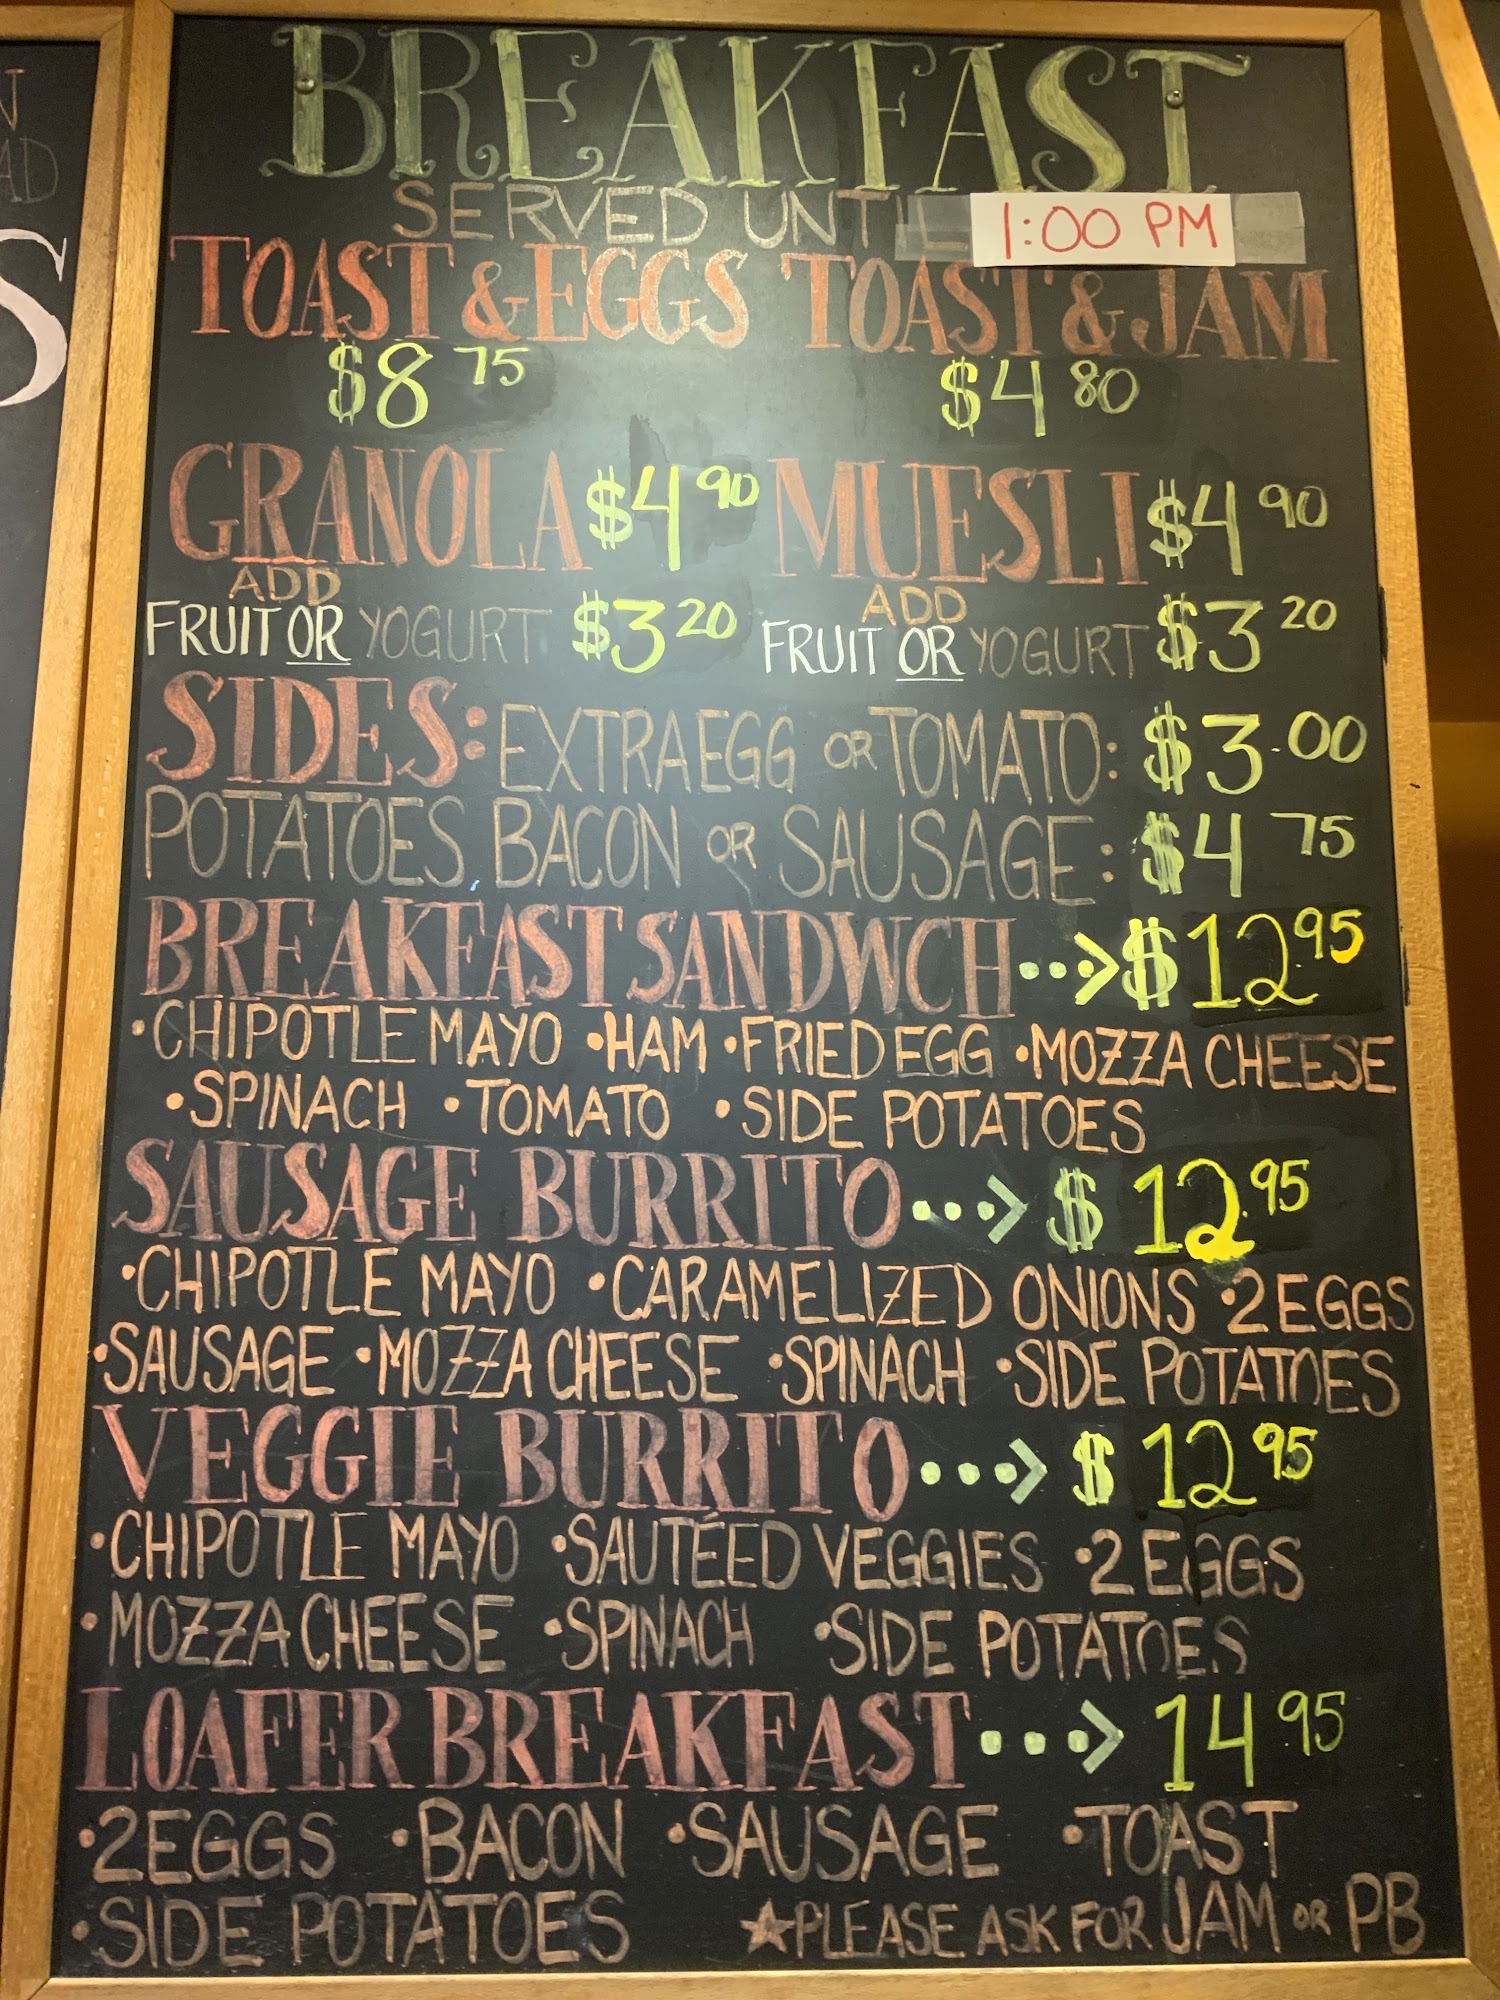 BREAKFAST
SERVED UNTIL 1:00 PM
TOAST & EGGS TOAST & JAM
$8 75 $4 80
GRANOLA $4 90 MUESLI $4 90
ADD ADD
FRUIT OR YOGURT $3 20 FRUIT OR YOGURT $3 20
SIDES: EXTRA EGG OR TOMATO: $3.00
POTATOES BACON OR SAUSAGE: $4 75
BREAKFAST SANDWCH ···> $12.95
·CHIPOTLE MAYO ·HAM ·FRIED EGG ·MOZZA CHEESE
·SPINACH ·TOMATO ·SIDE POTATOES
SAUSAGE BURRITO ···> $12.95
·CHIPOTLE MAYO ·CARAMELIZED ONIONS ·2 EGGS
·SAUSAGE ·MOZZA CHEESE ·SPINACH ·SIDE POTATOES
VEGGIE BURRITO ···> $12 95
·CHIPOTLE MAYO ·SAUTÉED VEGGIES ·2 EGGS
·MOZZA CHEESE ·SPINACH ·SIDE POTATOES
LOAFER BREAKFAST ···> 14 95
·2 EGGS ·BACON ·SAUSAGE ·TOAST
·SIDE POTATOES ★PLEASE ASK FOR JAM OR PB